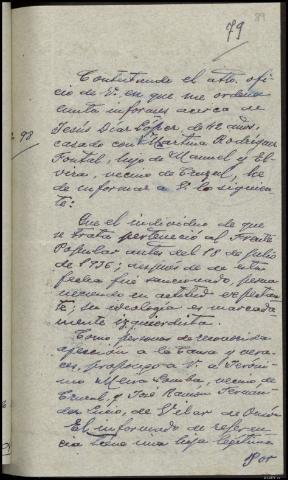 79
89
Contestando el atto. ofi
cio de V. en que me ordena
emita informes acerca de
Jesús Díaz López, de 42 años,
casado con Martina Rodríguez
Fontal, hijo de Manuel y El
vira, vecino de he
de informar a V. lo siguien
te:
Que el individuo de que
se trata perteneció al Frente
Popular antes del 18 de Julio
de 1936; después de esta
fecha fué sancionado, perma
neciendo en actitud expectan
te; su ideología es marcada
mente izquierdista.
Como personas de reconocida
afección a la Causa y vera
ces, propongo a V. a Jeróni
mo Neira vecino de
y José Ramón Fernán
dez de Vilar de
El informado de referen
cia tiene una hija legítima
Por
98